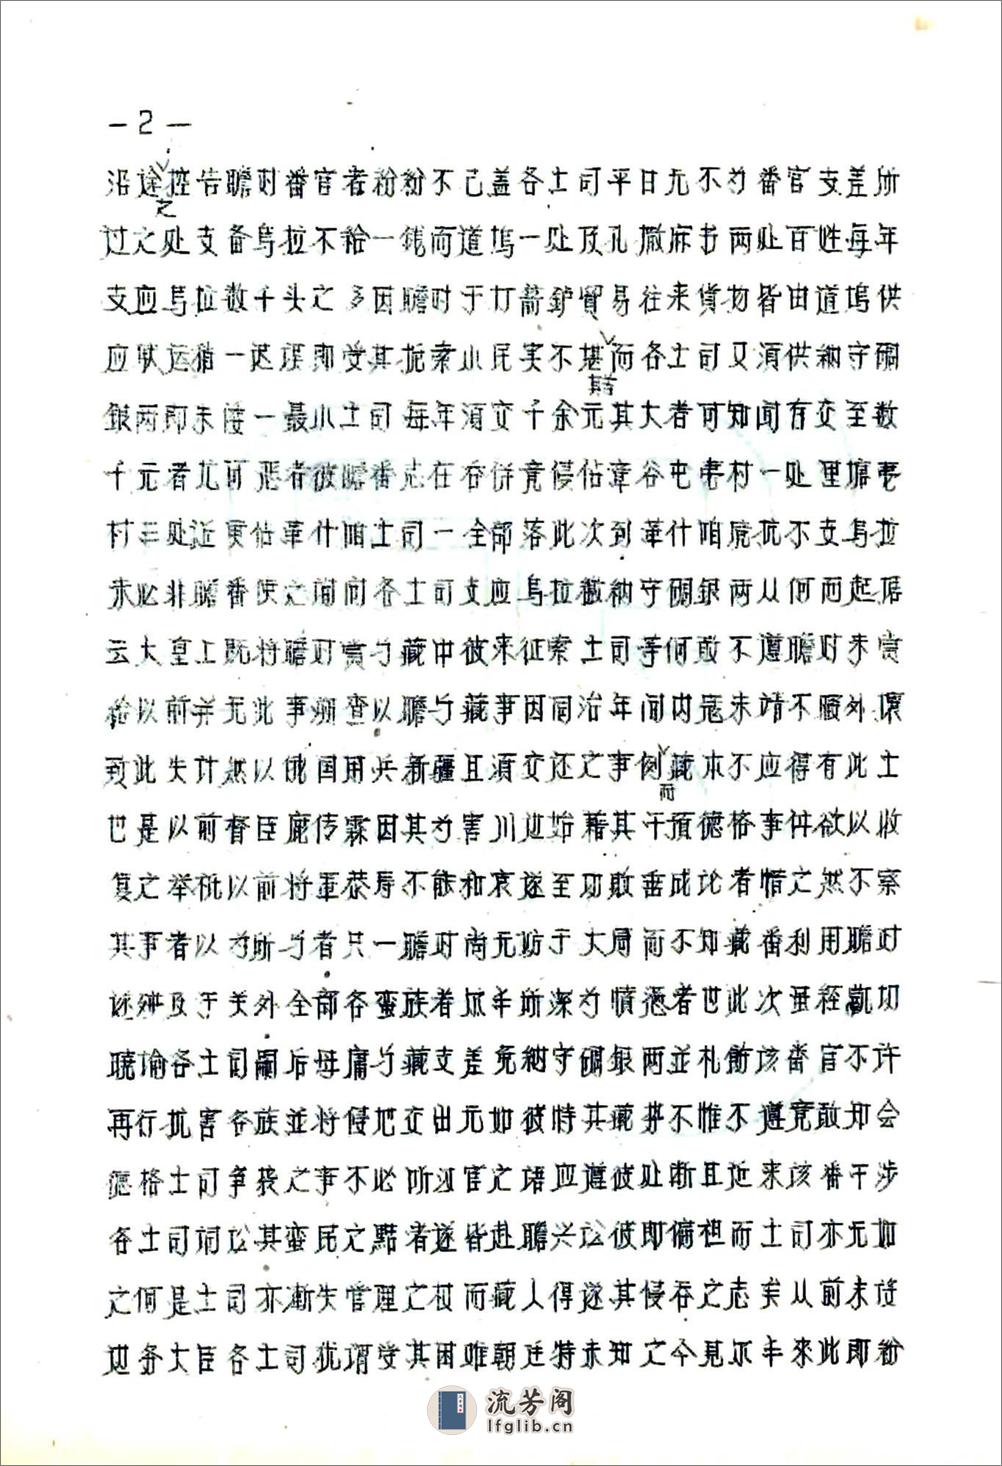 —2—
沿途控告瞻对番官者粉粉不已盖各土司平日无不为番官支差所
之
过之处支备乌拉不给一钱而道坞一处及孔撒麻书两处百姓每年
支应乌拉数千头之多因瞻对于打箭鈩貿易往来貨物皆由道坞供
应䭾运稍一迟误即受其扼索小民实不堪而各土司又湏供納守碉
其苦
銀两即朱倭一最小土司每年湏交千余元其大者可知间有交至数
千元者尤可恶者彼瞻番志在吞併竟侵佔章谷屯壱村一处里塘壱
村三处近更佔革什咱土司一全部落此次到革什咱竟抗不支乌拉
未必非瞻番使之询问各土司支应乌拉繳納守碉銀两从何而起居
云大皇上既将瞻对赏与藏中彼来征索土司等何敢不遵瞻对未赏
给以前并无此事频查以瞻与藏事因同治年间内冦未靖不暇外懷
致此失计然以俄国用兵新疆且湏交还之事例藏本不应得有此土
而
也是以前督臣鹿传霖因其为害川边始藉其干預德格事件欲以收
复之举秪以前将軍恭寿不能和衷遂至功败垂成论者惜之然不察
其事者以为所与者只一瞻对尚无妨于大局而不知藏番利用瞻对
遂殃及于关外全部各蛮族者尔丰所深为愤懣者也此次虽経剴切
曉瑜各土司嗣后毋庸与藏支差免納守碉銀两並札飭该番官不许
再行扰害各族並将侵圯交出无如彼特其藏势不惟不遵竟敢知会
德格土司争袭之事不必听汉官之语应遵彼处断且近来该番干涉
各土司词訟其蛮民之黠者遂皆赴瞻兴訟彼即偏袒而土司亦无如
之何是土司亦漸失管理之权而藏人得遂其侵吞之志矣从前未设
边务大臣各土司犹谓受其困难朝廷特未知之今見尔丰来此即粉
流芳阁
lfglib.cn